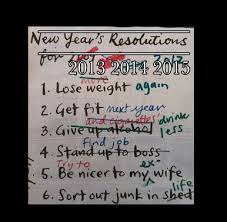 New Year's Resolutions
for
2013 2014 2015
1. Lose weight again
2. Get fit next year
and cigarettes drink
3. Give up alcohol less
find job
4. Stand up to boss
Try to ex-
5. Be nicer to my wife
life
6. Sort out junk in shed